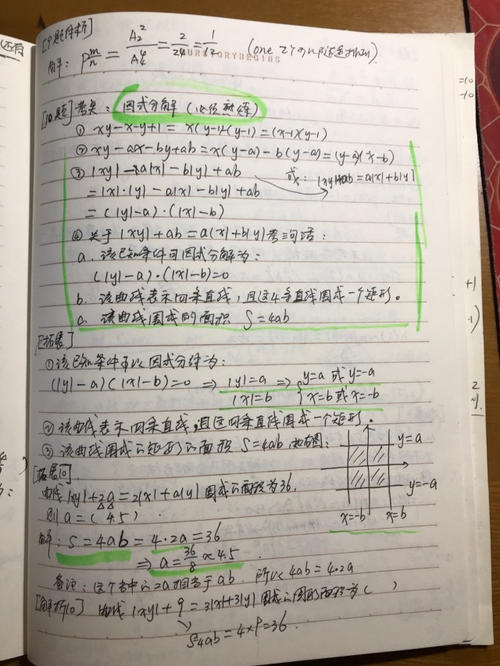 [9题解析]
解: P_n^m = A_2^2/A_4^4 = 2/24 = 1/12
[10题] 考点: 因式分解 (必须熟练)
① xy-x-y+1 = x(y-1)-(y-1)=(x-1)(y-1)
② xy-ax-by+ab = x(y-a)-b(y-a)=(y-a)(x-b)
③ |xy|-a|x|-b|y|+ab
或: |xy|+ab=a|x|+b|y|
=|x|·|y|-a|x|-b|y|+ab
=(|y|-a)·(|x|-b)
④ 关于|xy|+ab=a|x|+b|y|考三句话:
a. 该已知条件可因式分解为:
(|y|-a)·(|x|-b)=0
b. 该曲线表示四条直线,且这4条直线围成一个矩形。
c. 该曲线围成的面积 S=4ab
[拓展]
①该已知条件可以因式分解为:
(|y|-a)(|x|-b)=0 ⇒ |y|=a ⇒ y=a 或 y=-a
|x|=b x=b 或 x=-b
②该曲线表示四条直线,且这四条直线围成一个矩形。
③该曲线围成的矩形的面积 S=4ab 如图:
y=a
y=-a
x=-b x=b
[拓展10]
曲线|xy|+2a=2|x|+a|y|围成的面积为36,
则a=(4.5)
解: S=4ab=4·2a=36
⇒ a=36/8=4.5
备注:这个书中的2a相当于ab,所以4ab=4·2a
[解析10] 曲线|xy|+9=3|x|+3|y|围成的图形面积为( )
S4ab=4×9=36.